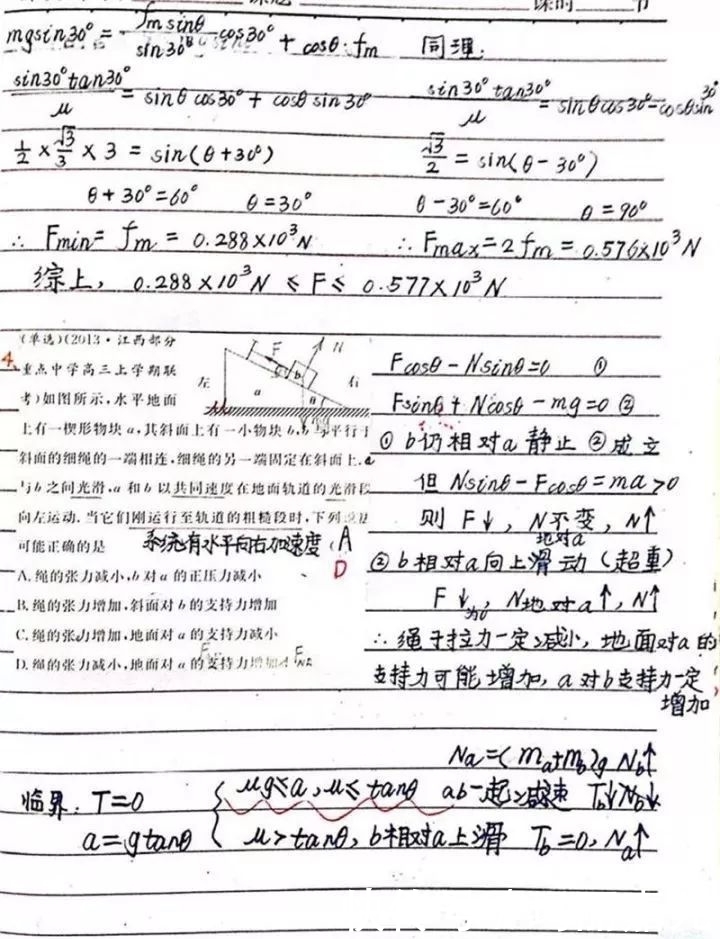 课时 节
mgsin30° = fm sinθ / sin30° cos30° + cosθ·fm 同理:
sin30°tan30° / μ = sinθcos30° + cosθsin30° sin30°tan30° / μ = sinθcos30° - cosθsin30°
1/2 × √3/3 × 3 = sin(θ+30°) √3/2 = sin(θ-30°)
θ+30°=60° θ=30° θ-30°=60° θ=90°
∴ Fmin = fm = 0.288×10³N ∴ Fmax = 2fm = 0.576×10³N
综上, 0.288×10³N ≤ F ≤ 0.577×10³N
4.
(单选)(2013·江西部分
重点中学高三上学期联
考)如图所示,水平地面
上有一楔形物块a,其斜面上有一小物块b,b与平行于
斜面的细绳的一端相连,细绳的另一端固定在斜面上.a
与b之间光滑,a和b以共同速度在地面轨道的光滑段
向左运动.当它们刚运行至轨道的粗糙段时,下列说法
可能正确的是 系统有水平向右加速度 (A
D
A.绳的张力减小,b对a的正压力减小
B.绳的张力增加,斜面对b的支持力增加
C.绳的张力增加,地面对a的支持力减小
D.绳的张力减小,地面对a的支持力增加
左 右 F N a b θ
Fcosθ - Nsinθ = 0 ①
Fsinθ + Ncosθ - mg = 0 ②
① b仍相对a静止 ②成立
但 Nsinθ - Fcosθ = ma > 0
则 F↓, N不变, N↑
地对a
② b相对a向上滑动 (超重)
F↓为0, N地对a↑, N↑
∴ 绳子拉力一定减小, 地面对a的
支持力可能增加, a对b支持力一定
增加
Na = (ma+mb)g Nb↑
临界: T=0 μg≤a, μ≤tanθ ab一起减速 Tb↓Nb↓
a=gtanθ μ>tanθ, b相对a上滑 Tb=0, Na↑